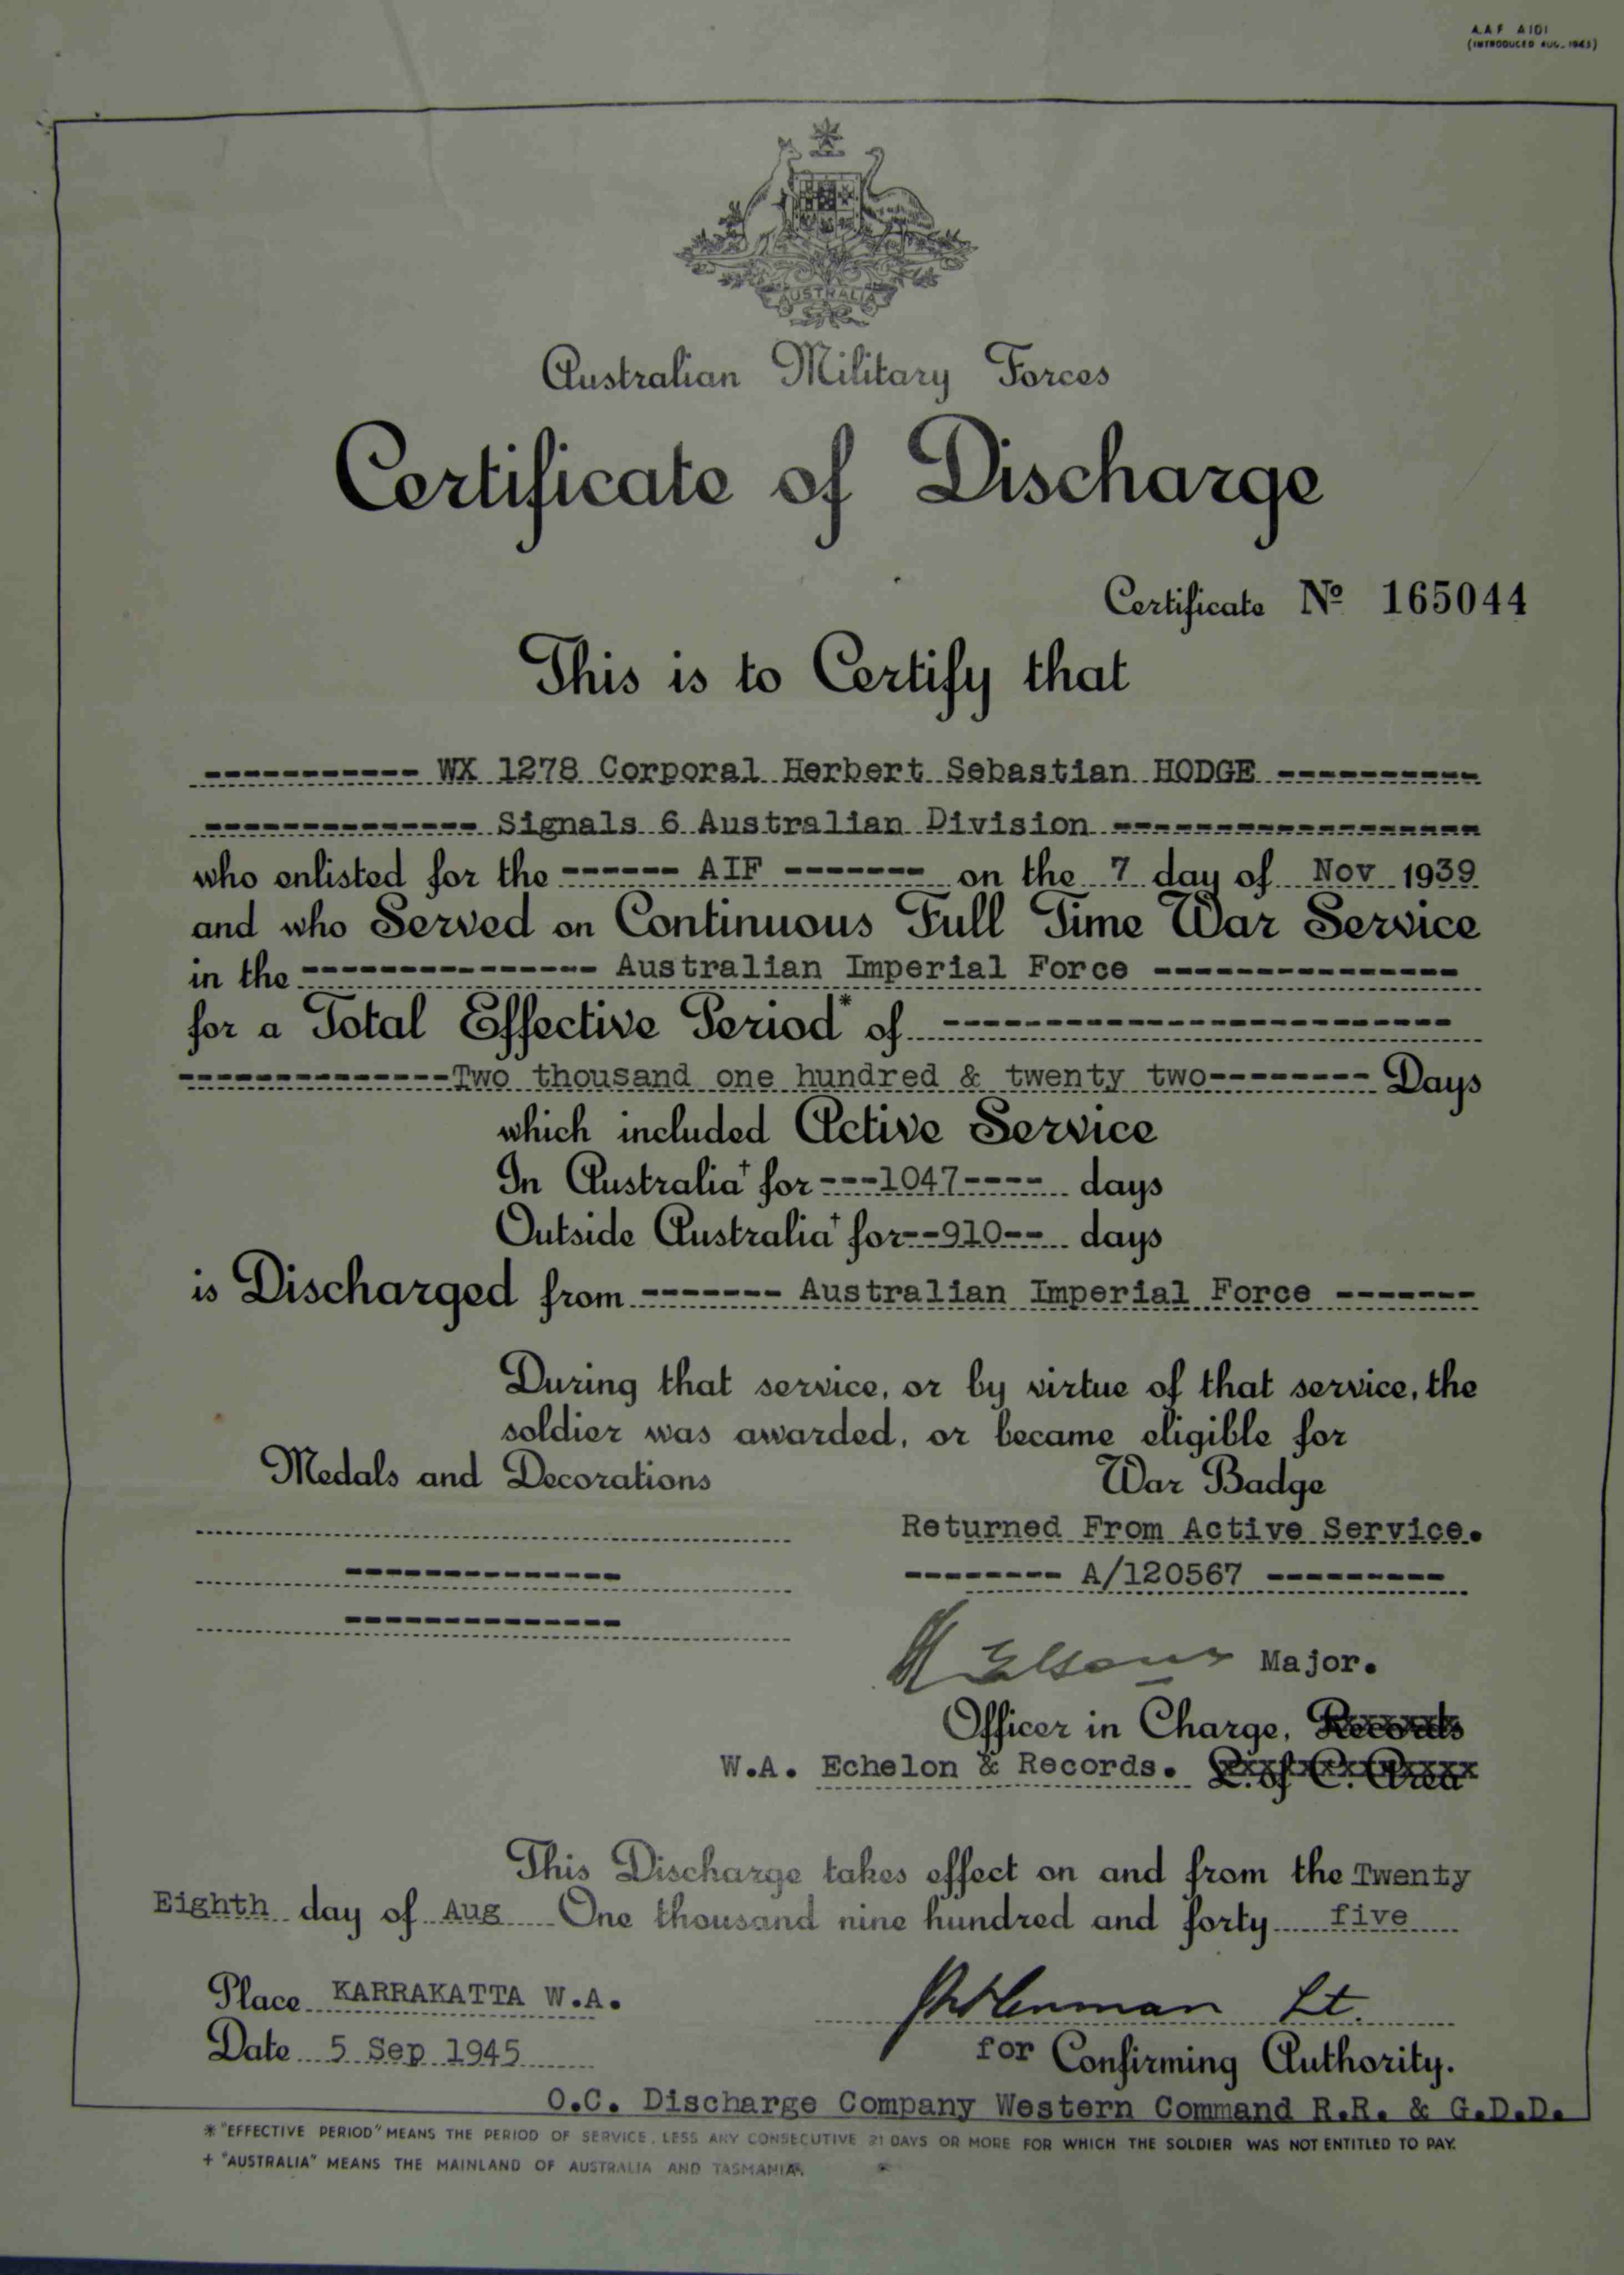 A.A.F. A101
(INTRODUCED AUG. 1943)
AUSTRALIA
Australian Military Forces
Certificate of Discharge
Certificate Nº 165044
This is to Certify that
----------- WX 1278 Corporal Herbert Sebastian HODGE ----------
-------------- Signals 6 Australian Division -------------------
who enlisted for the ------ AIF ------- on the 7 day of Nov 1939
and who Served on Continuous Full Time War Service
in the --------------- Australian Imperial Force ---------------
for a Total Effective Period* of --------------------------
--------------Two thousand one hundred & twenty two-------- Days
which included Active Service
In Australia+ for ---1047---- days
Outside Australia+ for--910-- days
is Discharged from ------- Australian Imperial Force -------
During that service, or by virtue of that service, the
soldier was awarded, or became eligible for
Medals and Decorations War Badge
Returned From Active Service.
-------------- -------- A/120567 ---------
--------------
Major.
Officer in Charge, Records
W.A. Echelon & Records. L. of C. Area
This Discharge takes effect on and from the Twenty
Eighth day of Aug One thousand nine hundred and forty five
Place KARRAKATTA W.A. Lt.
Date 5 Sep 1945 for Confirming Authority.
O.C. Discharge Company Western Command R.R. & G.D.D.
* "EFFECTIVE PERIOD" MEANS THE PERIOD OF SERVICE, LESS ANY CONSECUTIVE 21 DAYS OR MORE FOR WHICH THE SOLDIER WAS NOT ENTITLED TO PAY.
+ "AUSTRALIA" MEANS THE MAINLAND OF AUSTRALIA AND TASMANIA.